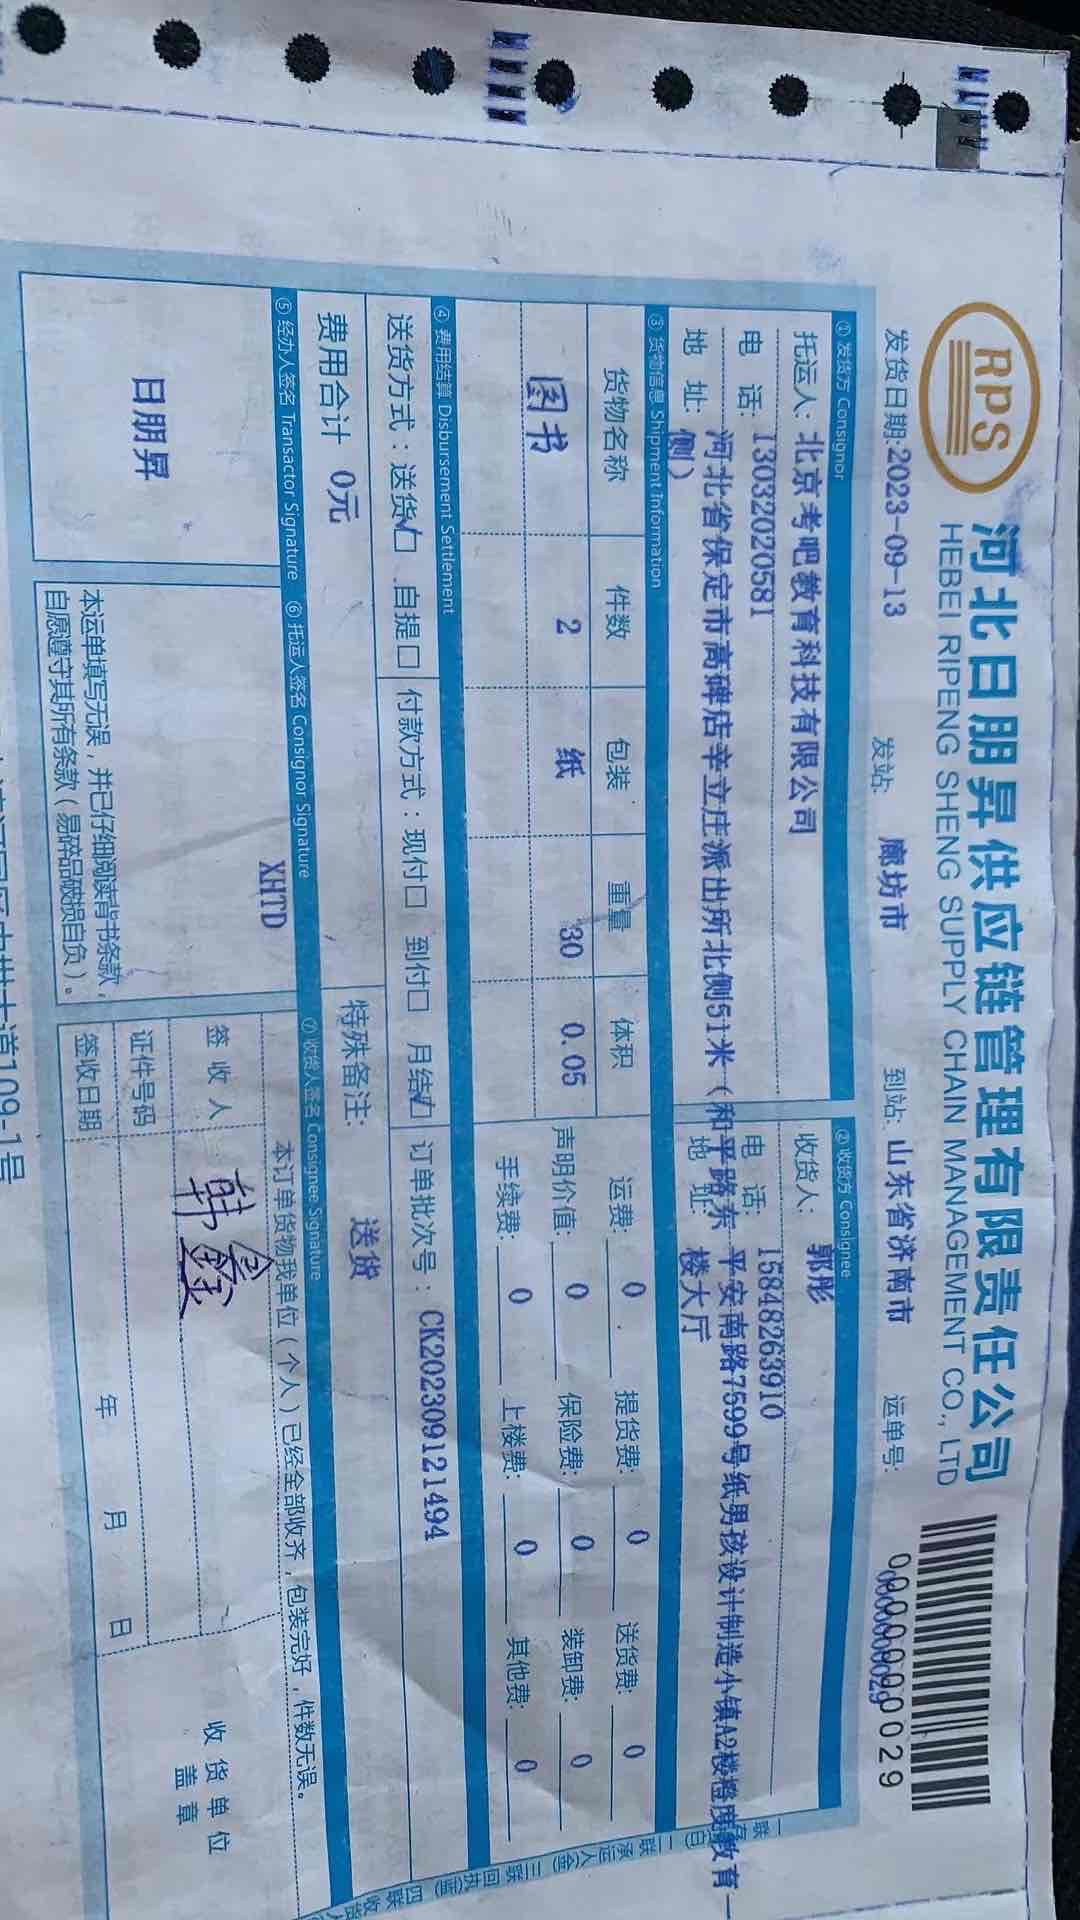 RPS
河北日朋昇供应链管理有限责任公司
HEBEI RIPENG SHENG SUPPLY CHAIN MANAGEMENT CO., LTD
发货日期:2023-09-13 发站: 廊坊市 到站: 山东省济南市 运单号:
0000000000029
① 发货方 Consignor
托运人: 北京考吧教育科技有限公司
电 话: 13032020581
地 址: 河北省保定市高碑店辛立庄派出所北侧51米（和平路东
侧）
② 收货方 Consignee
收货人: 郭彤
电 话: 15848263910
地 址: 平安南路7599号纸男孩设计制造小镇A2楼橙度教育一
楼大厅
③ 货物信息 Shipment Information
货物名称 件数 包装 重量 体积
图书 2 纸 30 0.05
运费: 0 提货费: 0 送货费: 0
声明价值: 0 保险费: 0 装卸费: 0
手续费: 0 上楼费: 0 其他费: 0
④ 费用结算 Disbursement Settlement
送货方式：送货☑ 自提□ 付款方式：现付□ 到付□ 月结☑ 订单批次号： CK202309121494
费用合计 0元 特殊备注: 送货
⑤ 经办人签名 Transactor Signature
日朋昇
⑥ 托运人签名 Consignor Signature
XHTD
本运单填写无误，并已仔细阅读背书条款，
自愿遵守其所有条款（易碎品破损自负）。
⑦ 收货人签名 Consignee Signature
本订单货物我单位（个人）已经全部收齐，包装完好，件数无误。
签 收 人 韩鑫
证件号码
签收日期 年 月 日
收 货 单 位
盖 章
道109-1号